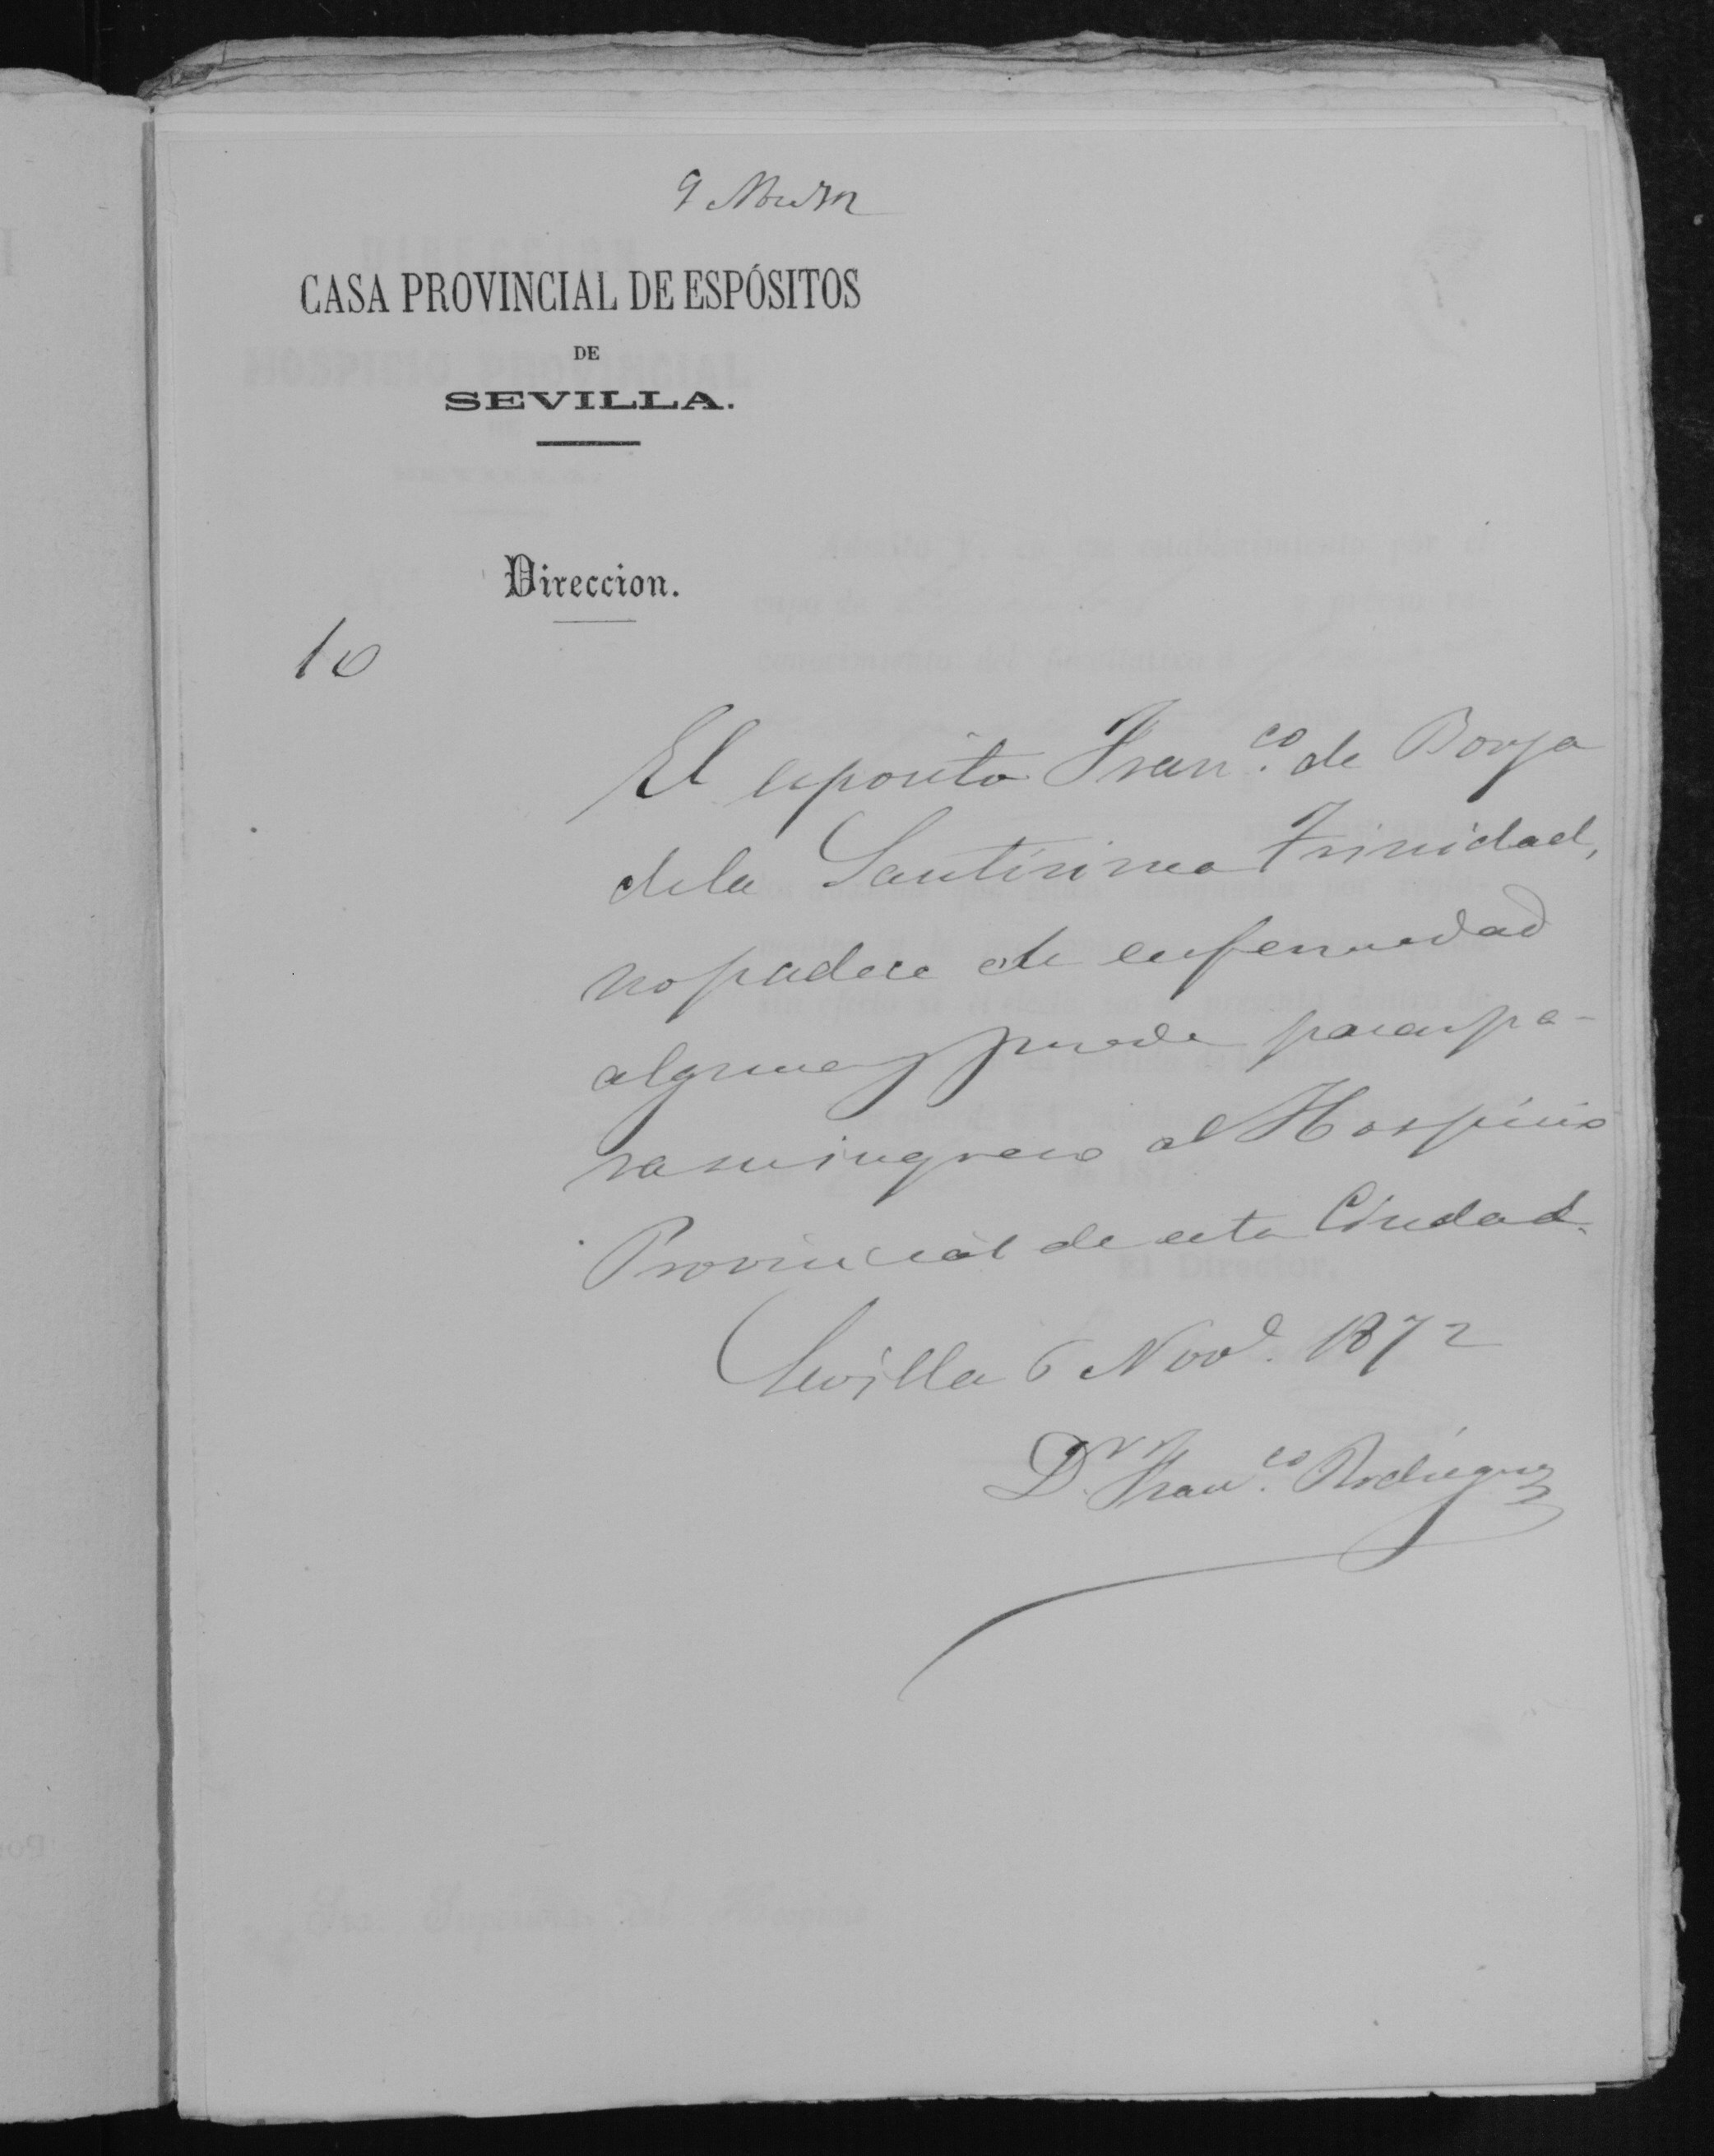 9 Nov 72
CASA PROVINCIAL DE ESPÓSITOS
DE
SEVILLA.
Direccion.
10
El esposito Fran.co de Borja
dela Santisima Trinidad,
no padece de enfermedad
alguna y puede pasar pa-
ra su ingreso al Hospicio
Provincial de esta Ciudad.
Sevilla 6 Nove. 1872
Dr. Fran.co Rodriguez